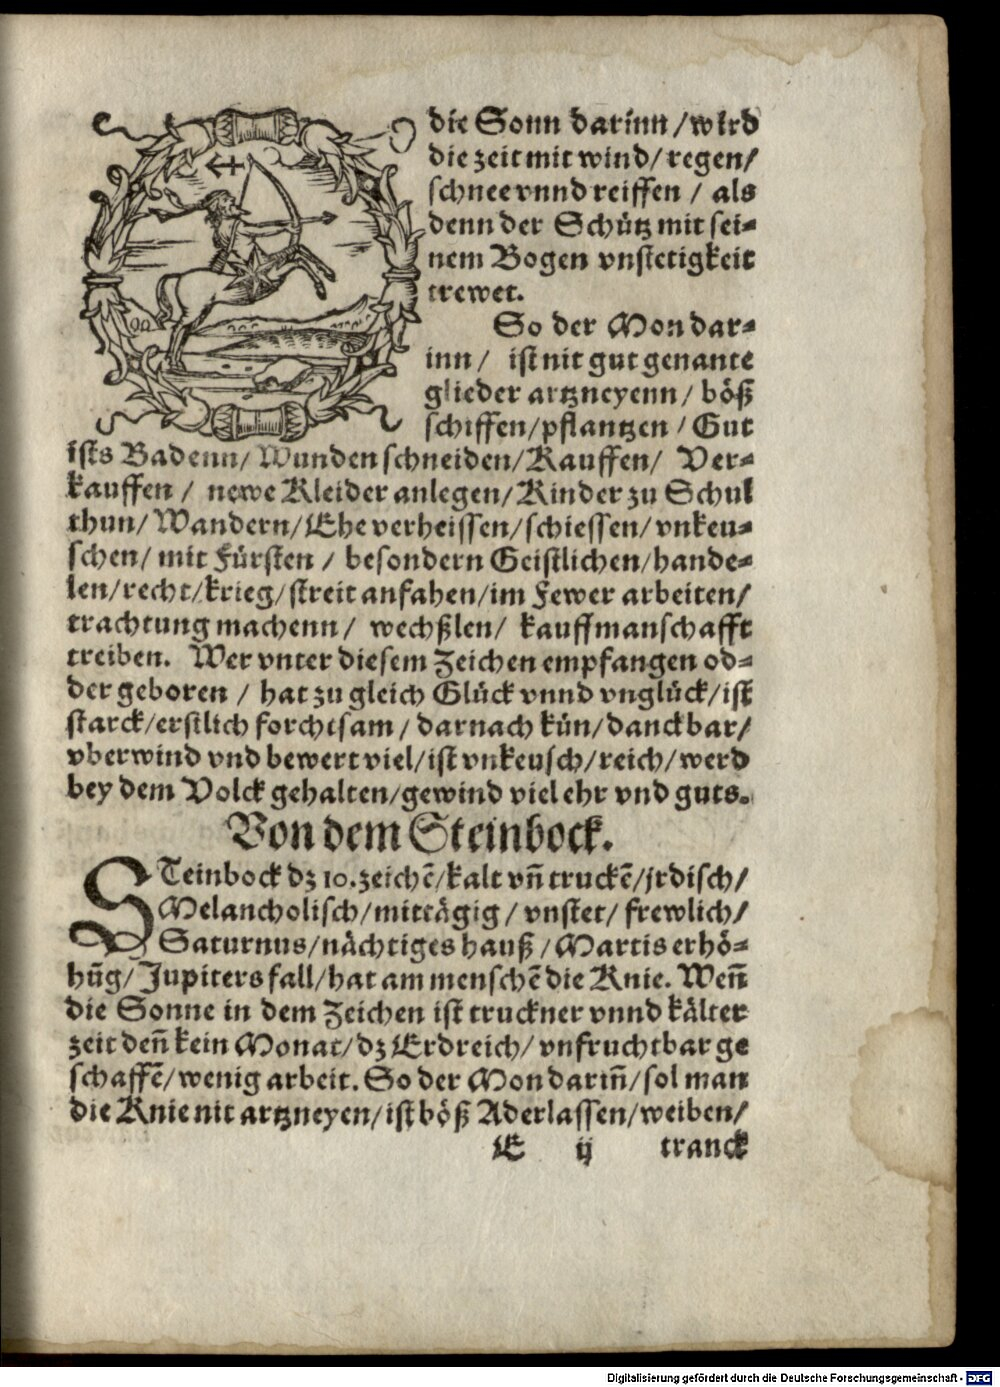 die Sonn darinn / wird
die zeit mit wind / regen /
schnee vnnd reiffen / als
denn der Schütz mit sei⸗
nem Bogen vnstetigkeit
trewet.
So der Mon dar⸗
inn / ist nit gut genante
glieder artzneyenn / böß
schiffen / pflantzen / Gut
ists Badenn / Wunden schneiden / Kauffen / Ver⸗
kauffen / newe Kleider anlegen / Kinder zu Schul
thun / Wandern / Ehe verheissen / schiessen / vnkeu⸗
schen / mit Fürsten / besondern Geistlichen / hande⸗
len / recht / krieg / streit anfahen / im Fewer arbeiten /
trachtung machenn / wechßlen / kauffmanschafft
treiben. Wer vnter diesem Zeichen empfangen od⸗
der geboren / hat zu gleich Glück vnnd vnglück / ist
starck / erstlich forchtsam / darnach kün / danckbar /
vberwind vnd bewert viel / ist vnkeusch / reich / werd
bey dem Volck gehalten / gewind viel ehr vnd guts.
Von dem Steinbock.
STeinbock dz 10. zeichē / kalt vñ truckē / jrdisch /
Melancholisch / mittägig / vnstet / frewlich /
Saturnus / nächtiges hauß / Martis erhö⸗
hũg / Jupiters fall / hat am menschē die Knie. Weñ
die Sonne in dem Zeichen ist truckner vnnd kälter
zeit deñ kein Monat / dz Erdreich / vnfruchtbar ge
schaffē / wenig arbeit. So der Mon dariñ / sol man
die Knie nit artzneyen / ist böß Aderlassen / weiben /
E ij tranck
Digitalisierung gefördert durch die Deutsche Forschungsgemeinschaft - DFG